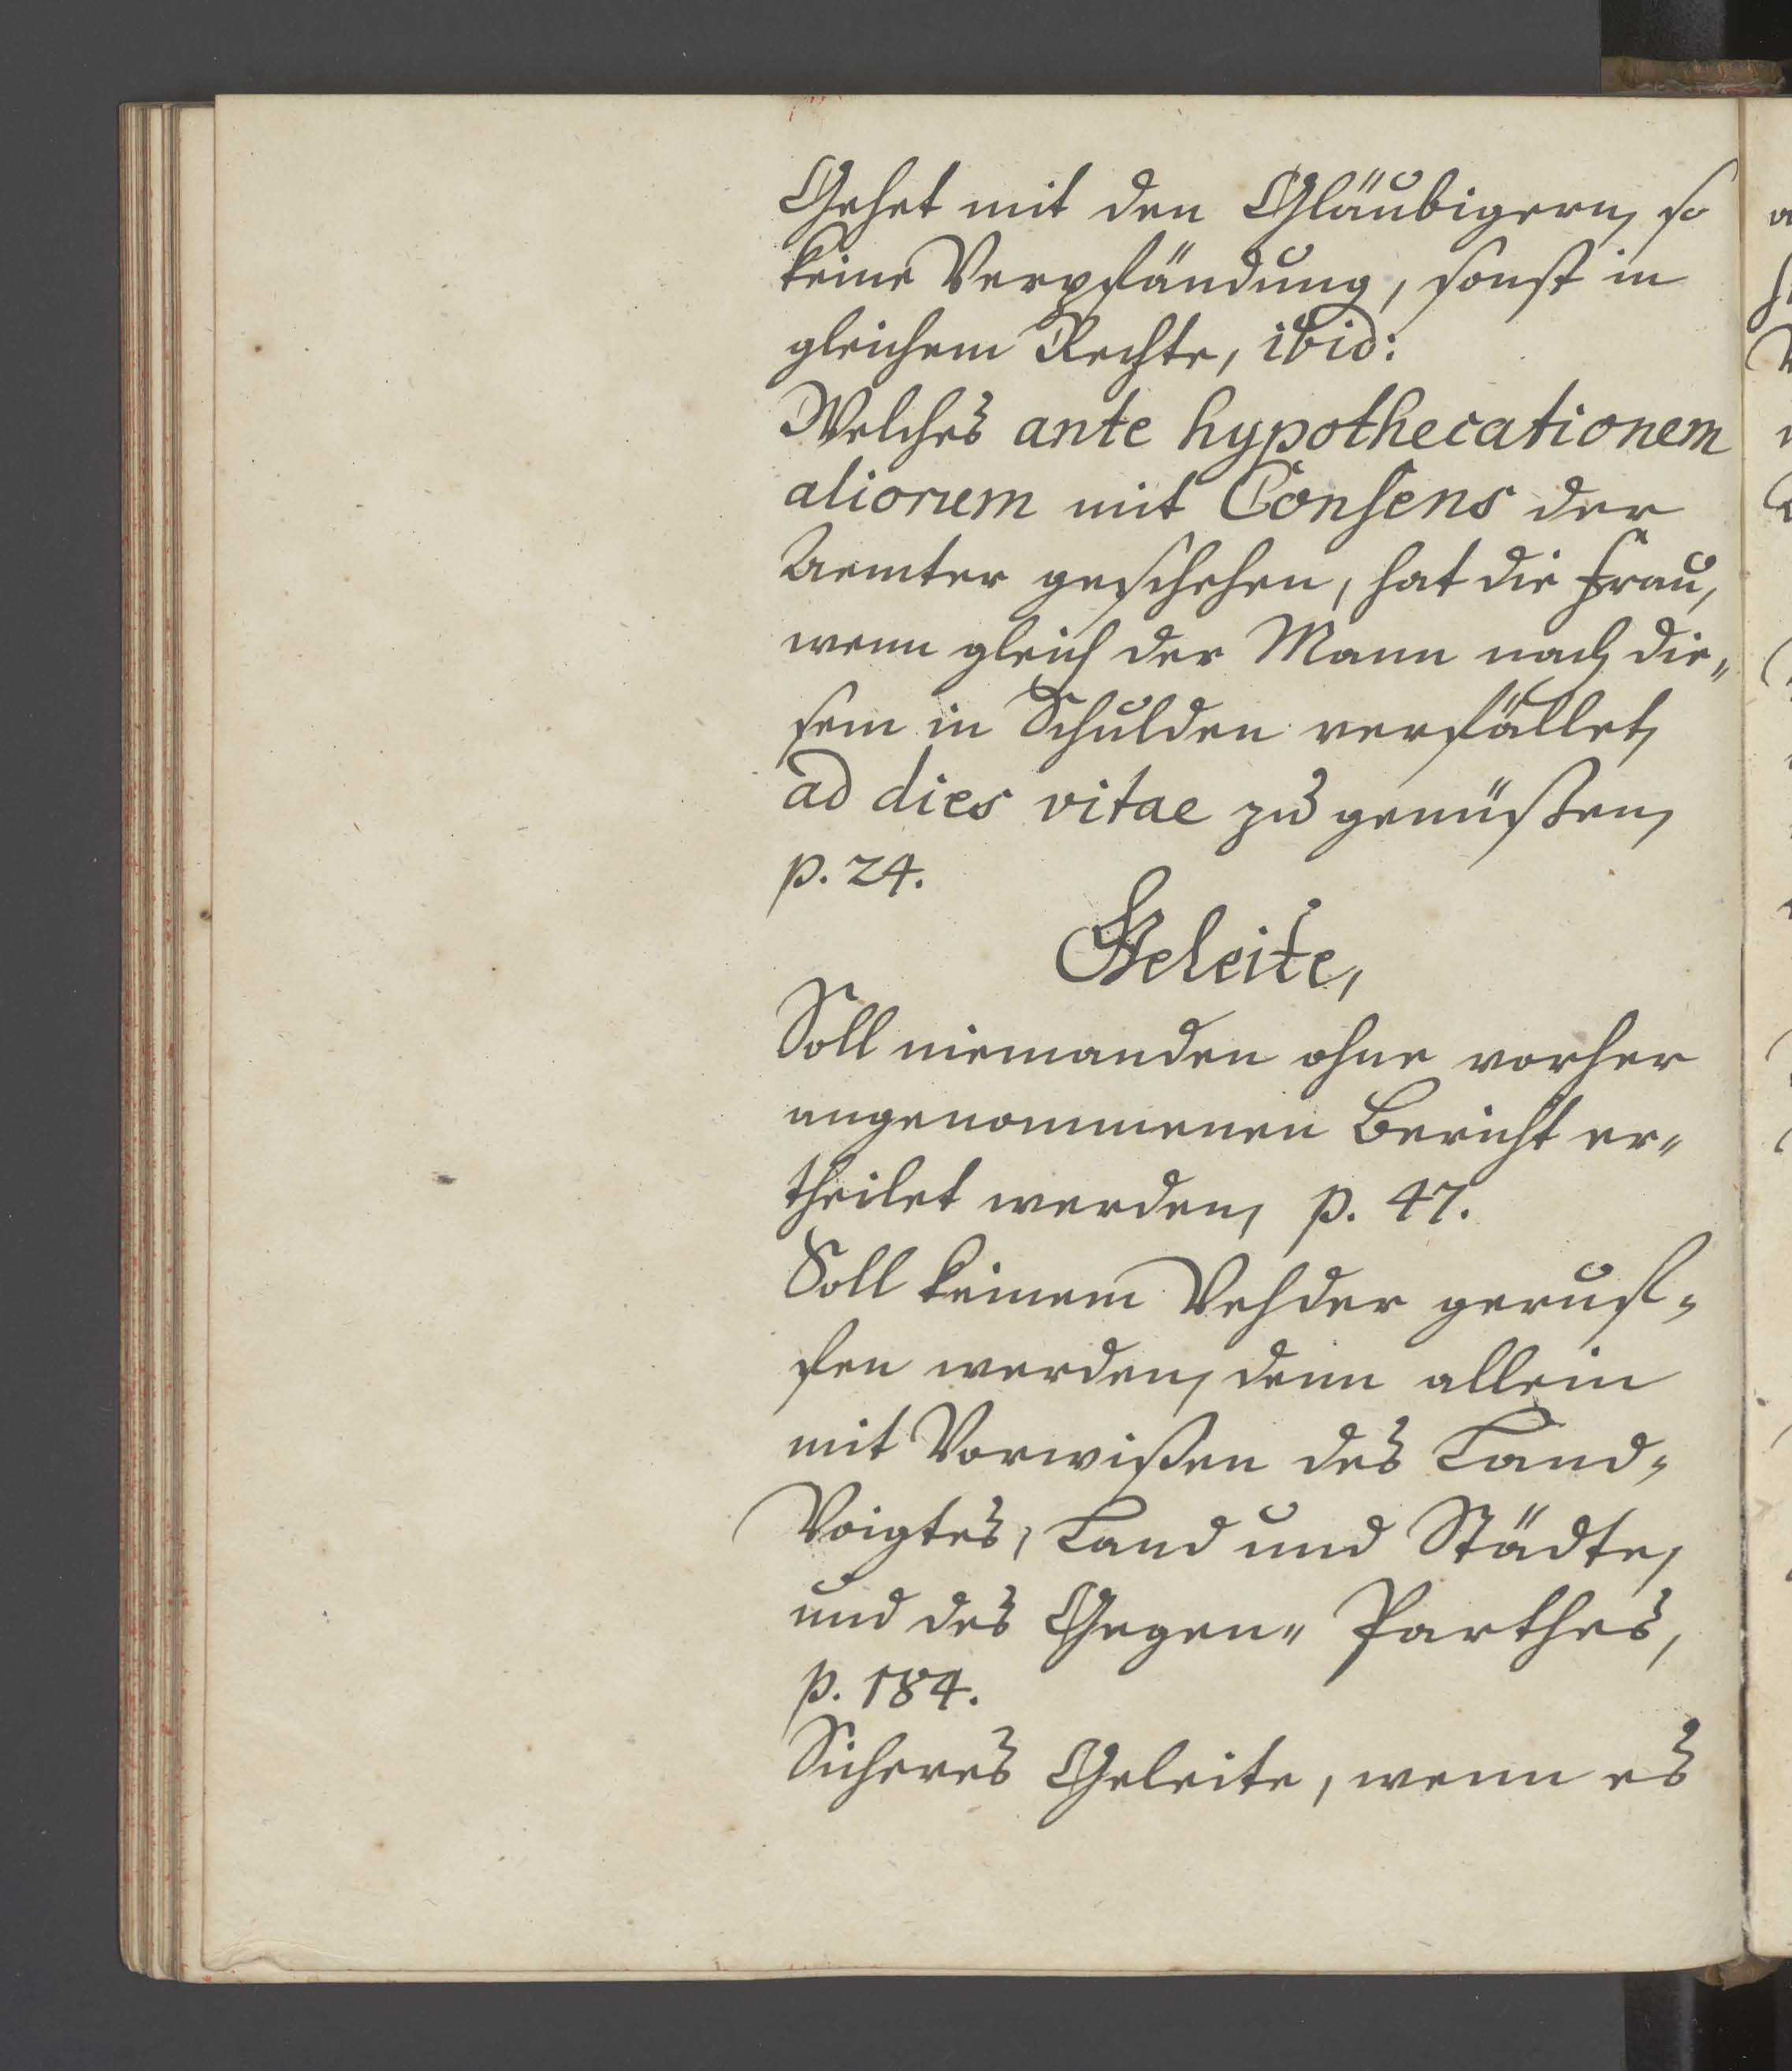 Gehet mit den Gläubigern, so
keine Verpfändung, sonst in
gleichem Rechte, ibid:
Welches ante hypothecationem
aliorum mit Consens der
Aemter geschehen, hat die Frau,
wenn gleich der Mann nach die„
sem in Schulden verfället,
ad dies vitae zu genüßen,
p. 24.
Geleite,
Soll niemanden ohne vorher
angenommenen Bericht er„
theilet werden, p. 47.
Soll keinem Vehder geruf„
fen werden, denn allein
mit Vorwißen des Land„
Voigtes, Land und Städte,
und des Gegen„ Parthes,
p. 184.
Sicheres Geleite, wenn es